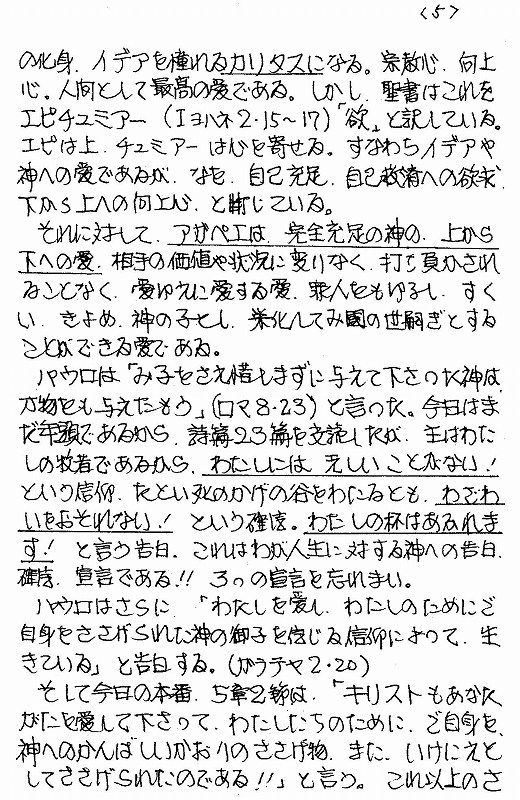 <5>
の化身、イデアを憧れるカリタスになる。宗教心、向上
心。人間として最高の愛である。しかし、聖書はこれを
エピチュミアー(Iヨハネ2・15~17)「欲」と訳している。
エピは上、チュミアーは心を寄せる。すなわちイデアや
神への愛であるが、なを、自己充足、自己救済への欲求
下から上への向上心、と断じている。
それに対して、アガペエは、完全充足の神の、上から
下への愛、相手の価値や状況に変りなく、打ち負かされ
ることなく、愛ゆえに愛する愛、罪人をもゆるし、すく
い、きよめ、神の子とし、栄化してみ国の世嗣ぎとする
ことができる愛である。
パウロは「み子をさえ惜しまずに与えて下さった神は、
万物をも与えたもう」(ロマ8・23)と言った。今日はま
だ年頭であるから、詩篇23篇を交読したが、主はわた
しの牧者であるから、わたしには乏しいことがない!
という信仰、たとい死のかげの谷をわたるとも、わざわ
いをおそれない! という確信。わたしの杯はあふれま
す! と言う告白、これはわが人生に対する神への告白、
確信、宣言である!! 3つの宣言を忘れまい。
パウロはさらに 「わたしを愛し、わたしのためにご
自身をささげられた神の御子を信じる信仰によって、生
きている」と告白する。(ガラテヤ2・20)
そして今日の本番、5章2節は、「キリストもあなた
がたを愛して下さって、わたしたちのために、ご自身を、
神へのかんばしいかおりのささげ物、また、いけにえと
してささげられたのである!!」と言う。これ以上のさ